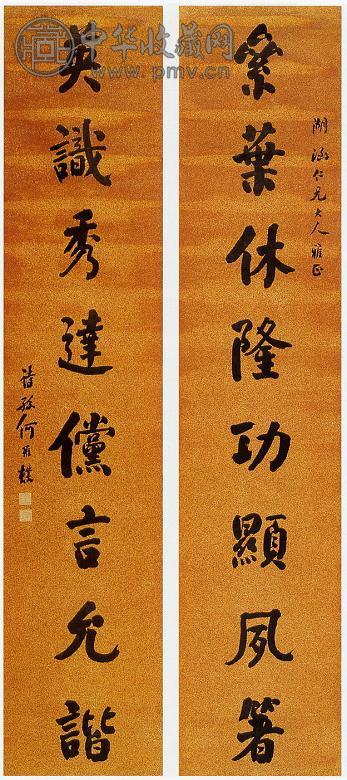 中华收藏网
www.pmv.cn
絫葉休隆功顯夙箸
仁兄大人雅正
英識秀達儻言允諧
詩孫何維樸